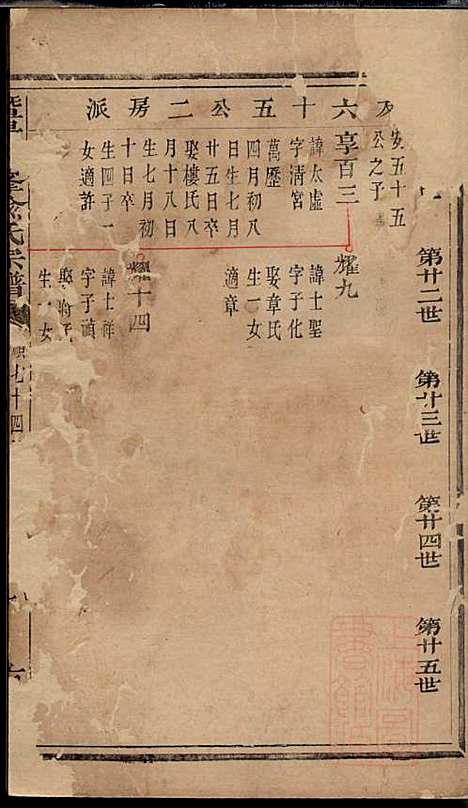 第廿二世
第廿三世
第廿四世
第廿五世
安五十五
公之子
六十五公二房派
享百三
諱太虛
字清宮
萬歷
四月初八
日生七月
廿五日卒
娶樓氏八
月十八日
生七月初
十日卒
生四子一
女適許
耀九
諱士聖
字子化
娶章氏
生一女
適章
耀十四
諱士祥
字子禎
生一女
氏宗譜